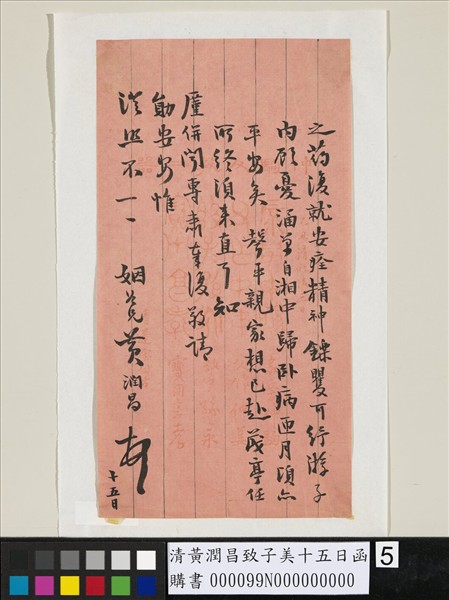 之药後就安痊精神鑠矍可紓游子
内顧憂涵万自湘中歸卧病匝月頃亦
平安矣 聲平親家想已赴茂亭任
所終須来直了知
廑併聞專肅奉復敬請
勛安多惟
澄照不一一
姻兄黄潤昌
十五日
清黃潤昌致子美十五日函
購書 000099N000000000
5